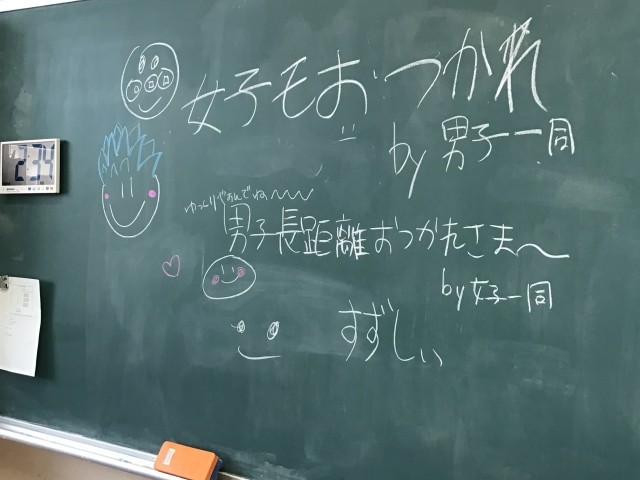 女子モおつかれ
by 男子一同
ゆっくりやすんでね〜〜〜
男子長距離おつかれさま〜
by 女子一同
すずしい